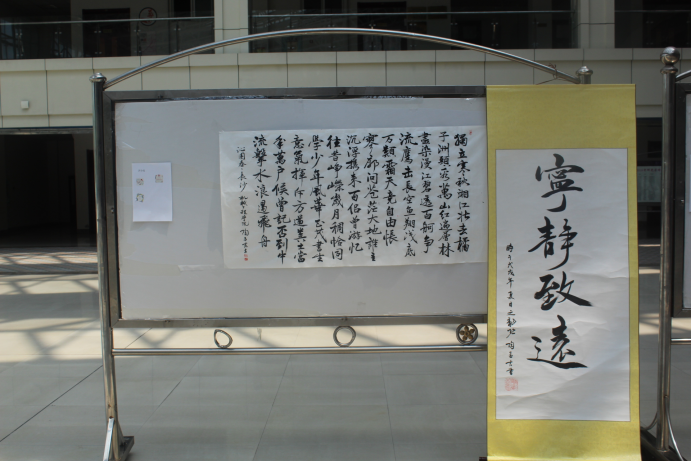 獨立寒秋湘江北去橘
子洲頭看萬山紅遍層林
盡染漫江碧透百舸爭
流鷹击長空魚翔浅底
万類霜天竞自由悵
寥廓问苍茫大地誰主
沉浮携来百侣曾游忆
往昔崢嶸歲月稠恰同
學少年風華正茂書生
意氣揮斥方遒糞土當
年萬户侯曾記否到中
流擊水浪遏飛舟
沁園春長沙
寧静致遠
時于戊戌年夏日